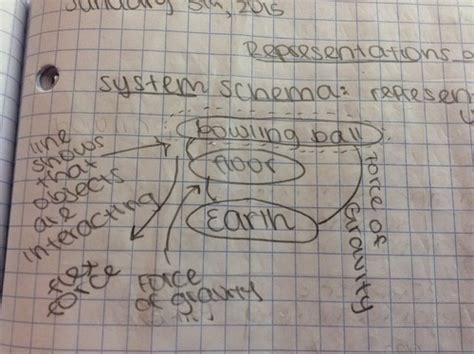 January 5th, 2015
Representations
system schema: represent
bowling ball
floor
Earth
line
shows
that
objects
are
interacting
force
of gravity
force of
gravity
force